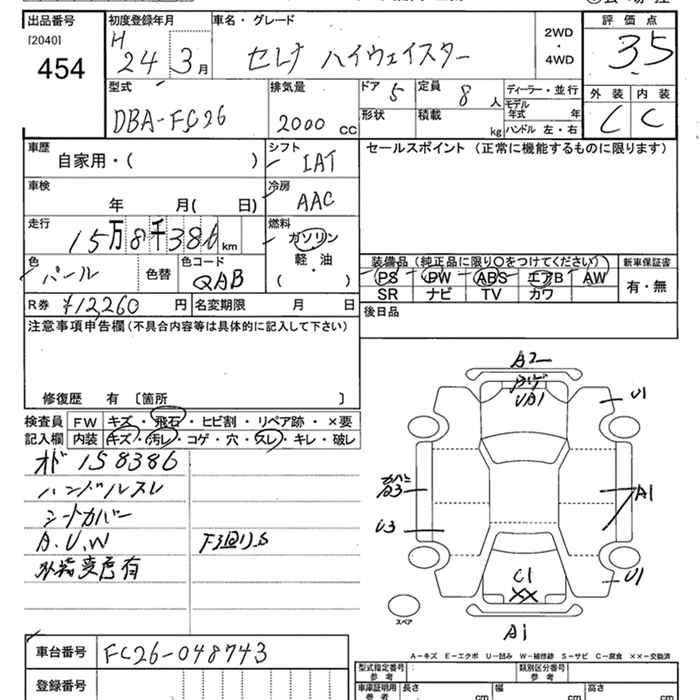 出品番号 初度登録年月 車名・グレード 評価点
[2040] H 2WD
454 24 3月 セレナ ハイウェイスター ・ 3.5
4WD
型式 排気量 ドア 5 定員 8 人 ディーラー・並行 外装 内装
DBA-FC26 2000 CC 形状 積載 kg モデル年式 年 C C
ハンドル 左・右
車歴 シフト セールスポイント (正常に機能するものに限ります)
自家用・( ) IAT
車検 冷房
年 月( 日) AAC
走行 燃料
15万8千386km ガソリン
軽・油
・
( )
色 色替 色コード 装備品 (純正品に限り○をつけてください) 新車保証書
パール QAB PS PW ABS エアB AW 有・無
SR ナビ TV カワ
R券 ¥12,260 円 名変期限 月 日
後日品
注意事項申告欄 (不具合内容等は具体的に記入して下さい)
修復歴 有 〔箇所 〕
検査員 FW キズ・飛石・ヒビ割・リペア跡・×要
記入欄 内装 キズ・汚レ・コゲ・穴・スレ・キレ・破レ
オド 158386
ハンドルスレ
シートカバー
A.U.W
外装変色有
A2
UA1
U1
A3
A1
U3
C1
XX
U1
スペア
A1
車台番号 FC26-048743
登録番号
A-キズ E-エクボ U-凹み W-補修跡 S-サビ C-腐食 ××-交換済
型式指定番号 参考 類別区分番号 参考
車庫証明用 参考 長さ cm 幅 cm 高さ cm